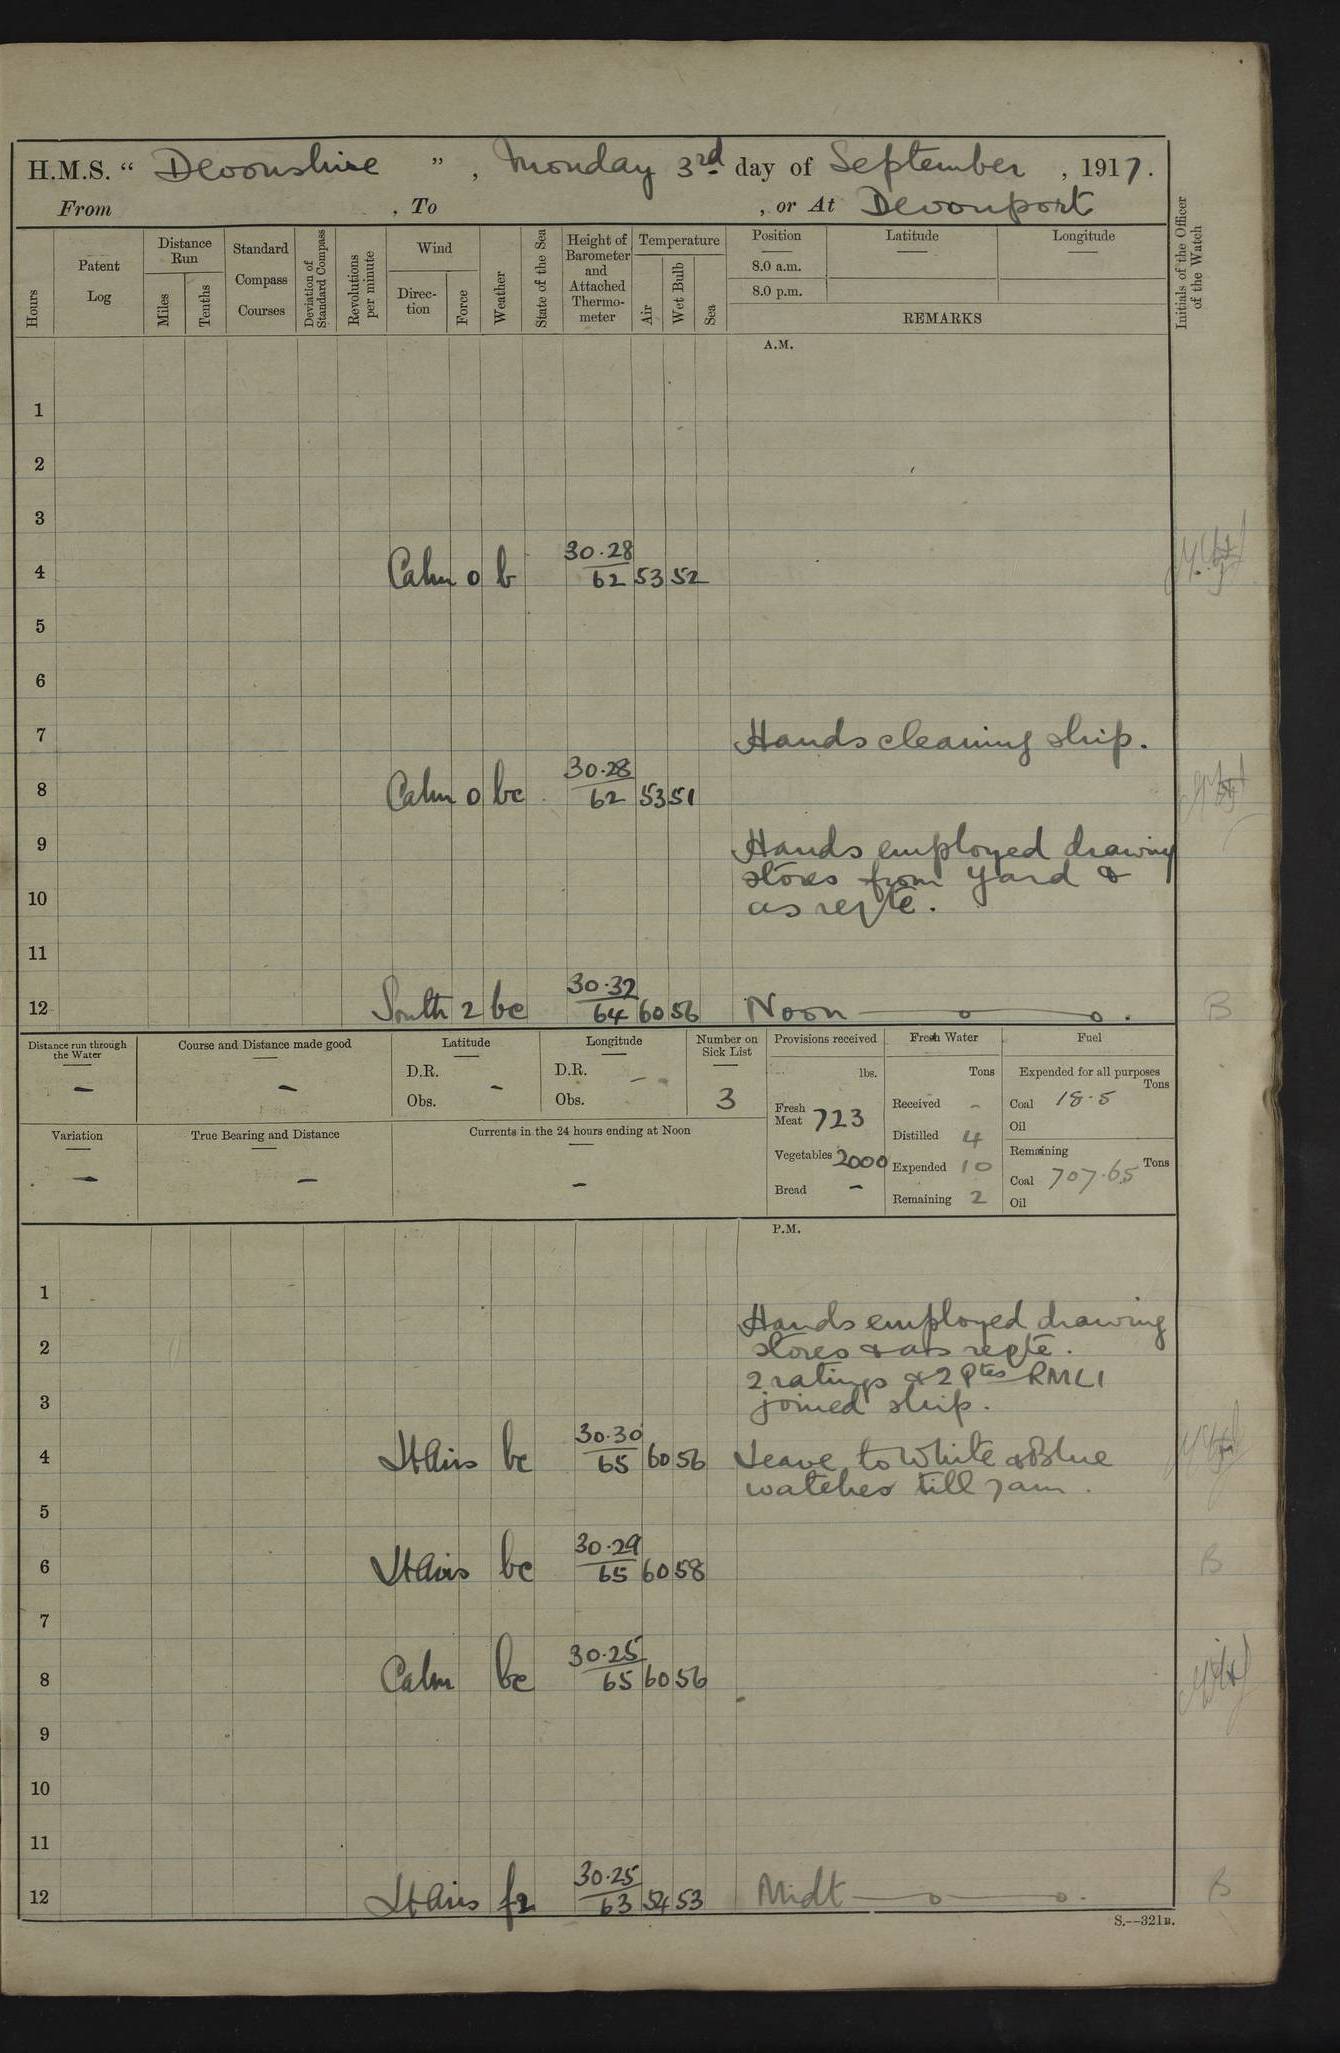 H.M.S. “ Devonshire ” , Monday 3rd day of September , 1917.
From , To , or At Devonport
Hours
Patent Log
Distance Run
Miles
Tenths
Standard Compass Courses
Deviation of Standard Compass
Revolutions per minute
Wind
Direction
Force
Weather
State of the Sea
Height of Barometer and Attached Thermometer
Temperature
Air
Wet Bulb
Sea
Position
8.0 a.m.
8.0 p.m.
Latitude
Longitude
REMARKS
Initials of the Officer of the Watch
A.M.
1
2
3
4 Calm 0 b 30.28 62 53 52
5
6
7 Hands cleaning ship.
8 Calm 0 bc 30.28 62 53 51
9 Hands employed drawing
stores from yard &
10 as reqte.
11
12 South 2 bc 30.32 64 60 56 Noon B
Distance run through the Water
–
Course and Distance made good
–
Latitude
D.R.
Obs. –
Longitude
D.R. –
Obs.
Number on Sick List
3
Variation
–
True Bearing and Distance
–
Currents in the 24 hours ending at Noon
–
Provisions received
lbs.
Fresh Meat 723
Vegetables 2000
Bread –
Fresh Water
Tons
Received –
Distilled 4
Expended 10
Remaining 2
Fuel
Expended for all purposes
Tons
Coal 18.5
Oil
Remaining
Tons
Coal 707.65
Oil
P.M.
1
Hands employed drawing
2 stores & as reqte.
2 ratings & 2 Ptes RMLI
3 joined ship.
4 Lt Airs bc 30.30 65 60 56 Leave to White & Blue
watches till 7am.
5
6 Lt Airs bc 30.29 65 60 58 B
7
8 Calm bc 30.25 65 60 56
9
10
11
12 Lt Airs 30.25 63 54 53 Midt B
S.—321B.